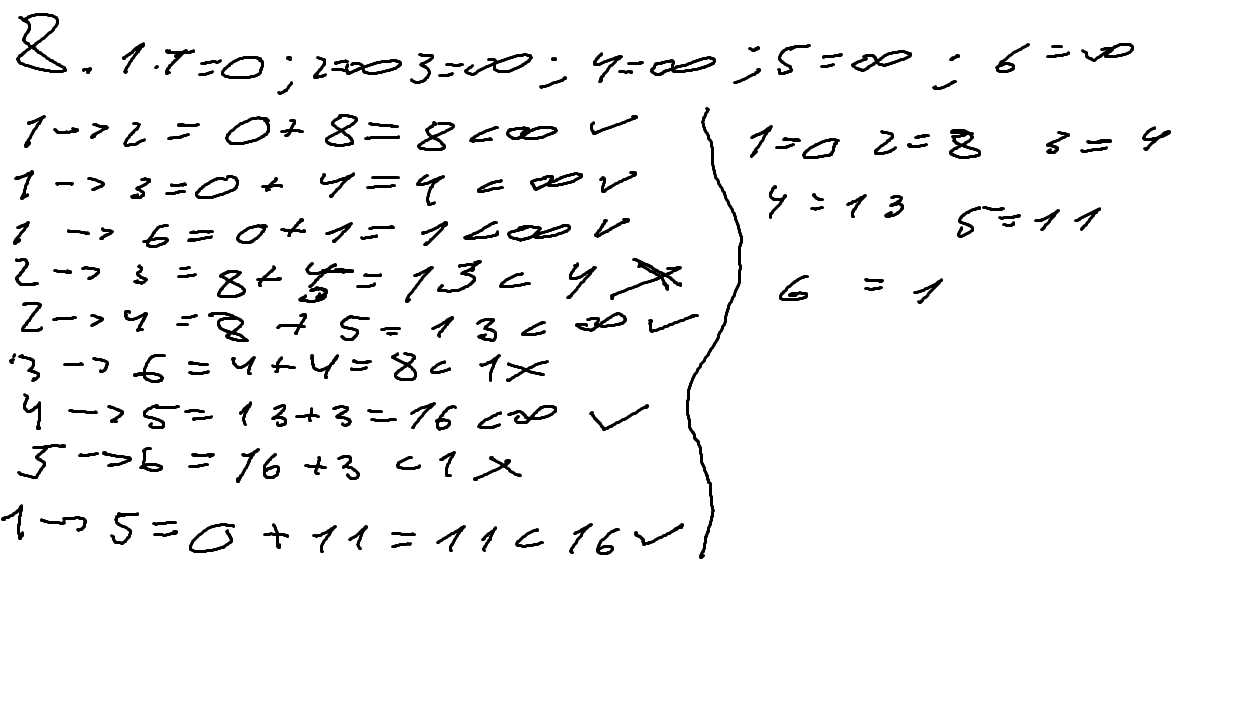 8. 1.T=0; 2=∞ 3=∞; 4=∞; 5=∞; 6=∞
1->2=0+8=8<∞ ✓
1->3=0+4=4<∞ ✓
1->6=0+1=1<∞ ✓
2->3=8+5=13<4 X
2->4=8+5=13<∞ ✓
3->6=4+4=8<1 X
4->5=13+3=16<∞ ✓
5->6=16+3<1 X
1->5=0+11=11<16 ✓
1=0 2=8 3=4
4=13 5=11
6=1